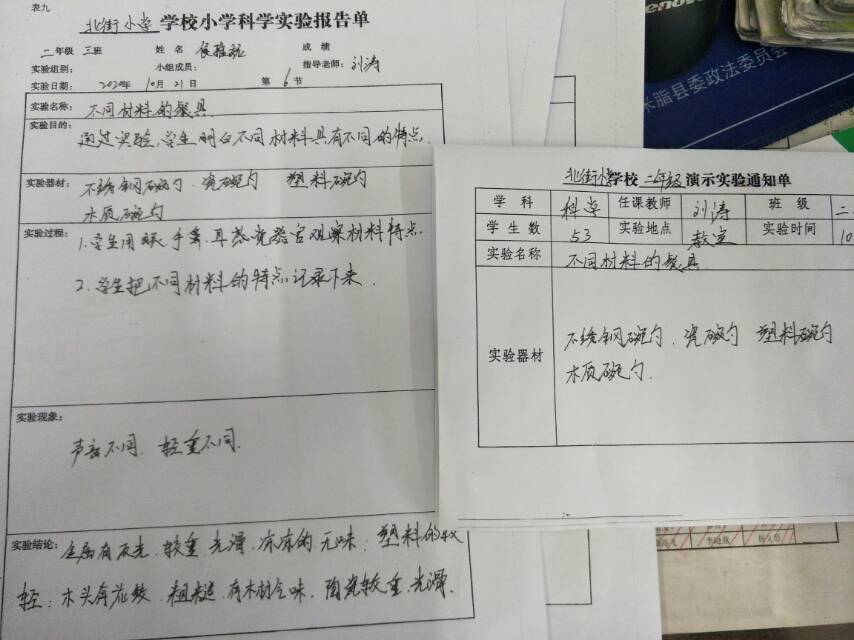 表九
北街小学 学校小学科学实验报告单
二年级 三班 姓名 成绩
实验组别: 小组成员: 指导老师: 刘涛
实验日期: 2020年 10月 21日 第 6 节
实验名称: 不同材料的餐具
实验目的:
通过实验,学生明白不同材料具有不同的特点.
实验器材: 不锈钢碗勺 瓷碗勺 塑料碗勺
木质碗勺
实验过程: 1.学生用眼、手、鼻、耳等感觉器官观察材料特点.
2.学生把不同材料的特点记录下来.
实验现象:
声音不同. 轻重不同.
实验结论: 金属有反光、较重、光滑、凉凉的、无味; 塑料的较
轻; 木头有花纹、粗糙、有木材气味, 陶瓷较重、光滑.
北街小学学校 二年级 演示实验通知单
学科 科学 任课教师 刘涛 班级 二
学生数 53 实验地点 教室 实验时间 10
实验名称 不同材料的餐具
实验器材 不锈钢碗勺、瓷碗勺 塑料碗勺
木质碗勺.
lenovo
米脂县委政法委员会